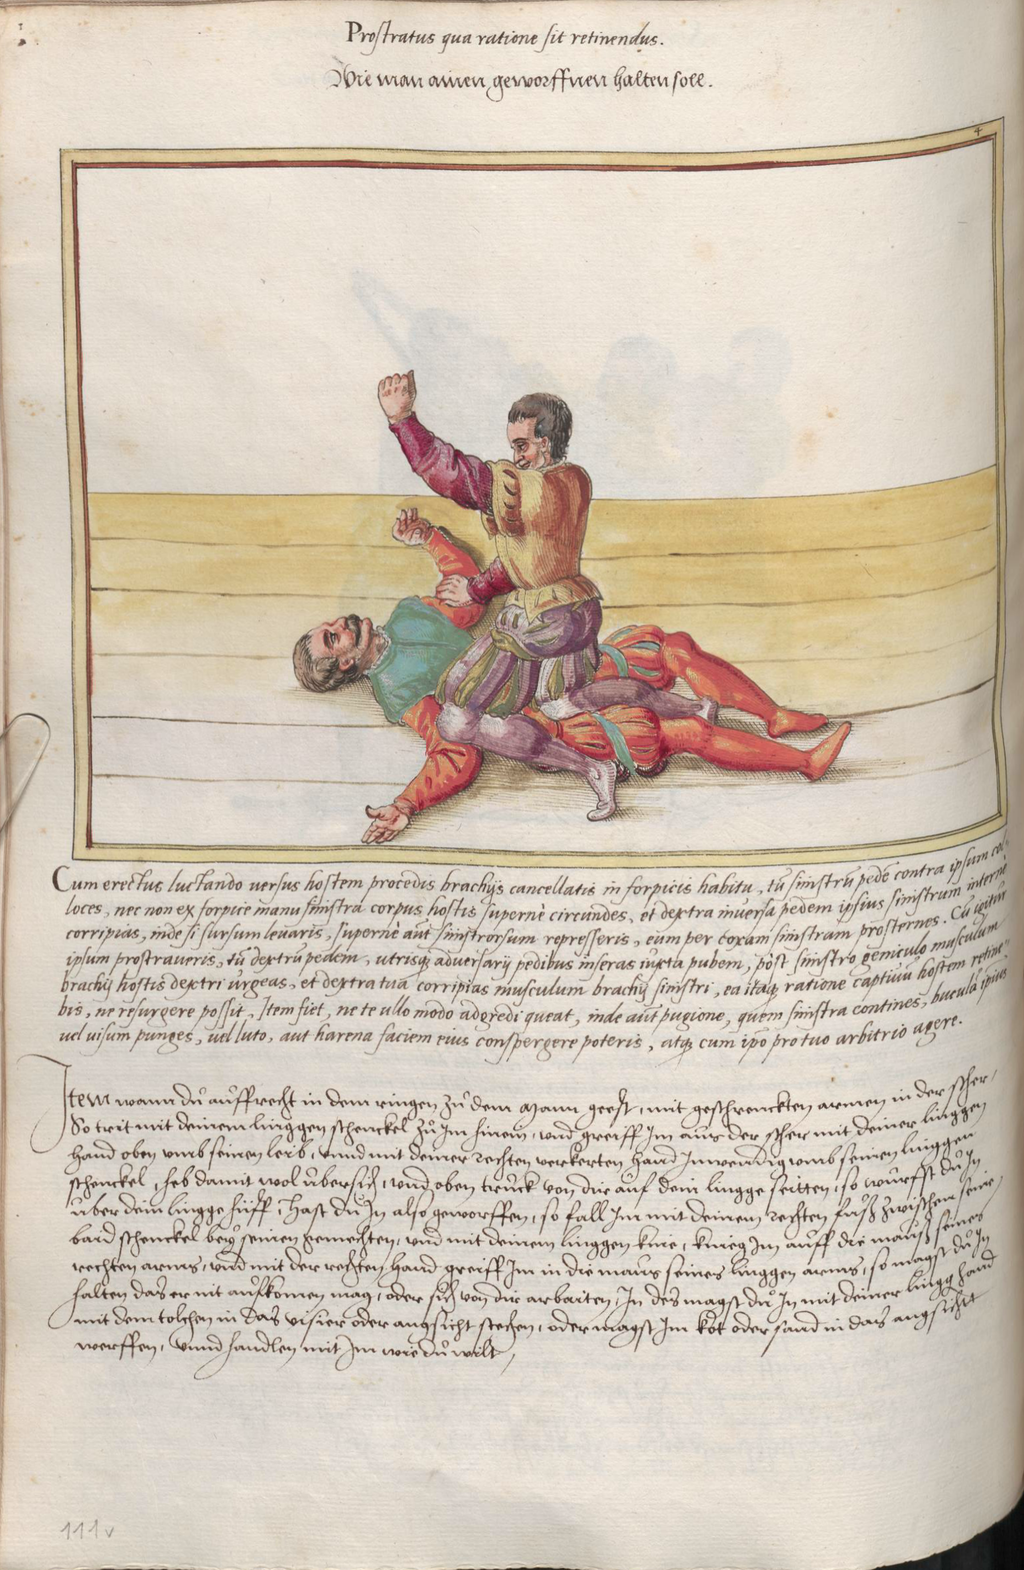 Prostratus qua ratione sit retinendus.
Wie man ainen geworffnen halten soll.
4
Cum erectus luctando versus hostem procedis brachijs cancellatis in forpicis habitu, tū sinistrū pedē contra ipsum col-
loces, nec non ex forpice manu sinistra corpus hostis supernè circundes, et dextra inversa pedem ipsius sinistrum internè
corripias, inde si sursum levaris, supernè aut sinistrorsum represseris, eum per coxam sinistram prosternes. Cū igitur
ipsum prostraveris, tū dextrū pedem, utrisq; adversarij pedibus inseras iuxta pubem, pòst sinistro geniculo musculum
brachij hostis dextri urgeas, et dextra tua corripias musculum brachij sinistri, ea itaq; ratione captivū hostem retine-
bis, ne resurgere possit, Item fiet, ne te ullo modo adgredi queat, inde aut pugione, quem sinistra contines, buculā ipsius
vel visum punges, vel luto, aut harena faciem eius conspergere poteris, atq; cum ipō pro tuo arbitrio agere.
Item wann dū aūffrecht in dem ringen zū dem Mann geest, mit geschrenckten armen in der scher,
So trit mit deinem linggen schenckel zū Im hinein, vnd greiff Im aūs der scher mit deiner linggen
hand oben vmb seinen leib, vnnd mit deiner rechten verkerten hand Inwendig vmb seinen linggen
schenckel, heb damit wol ūbersich, vnd oben trūck von dir aūf dein lingge seitten, so wūrffst dū In
ūber dein lingge hūff, Hast dū In also geworffen, so fall Im mit deinem rechten fūsz zwischen seine
baid schenckel bey seinen gemechten, vnd mit deinem linggen knie, knieg Im aūff die maūsz seines
rechten arms, vnd mit der rechten hand greiff Im in die maūs seines linggen arms, so magst dū In
halten das er nit aūfkomen mag, oder sich von dir arbaiten, In des magst dū In mit deiner lingg hand
mit dem tolchen in das visier oder angsicht stechen, oder magst Im kot oder sand in das angsicht
werffen, vnnd handlen mit Im wie dū wilt,
111v